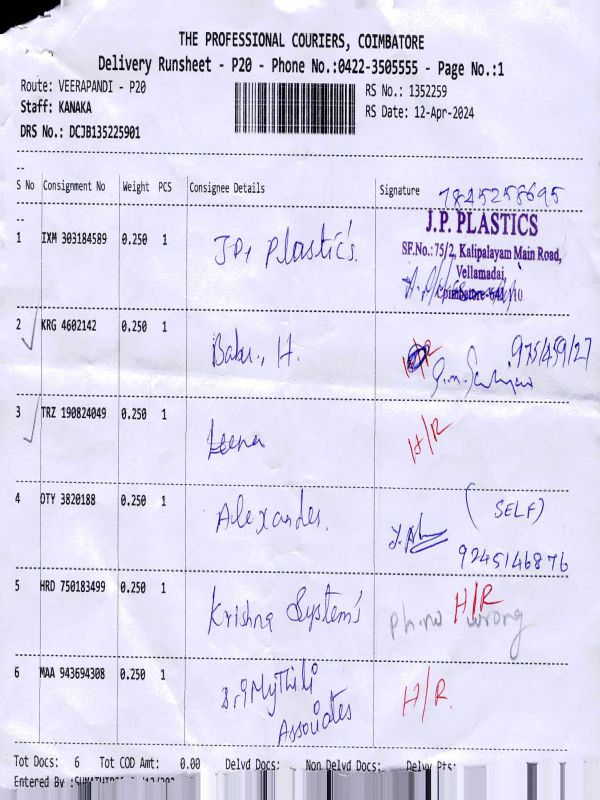 THE PROFESSIONAL COURIERS, COIMBATORE
Delivery Runsheet - P20 - Phone No.:0422-3505555 - Page No.:1
Route: VEERAPANDI - P20
RS No.: 1352259
Staff: KANAKA
RS Date: 12-Apr-2024
DRS No.: DCJB135225901
S No Consignment No Weight PCS Consignee Details Signature
7845258695
1 IXM 303184589 0.250 1 J.P. Plastic's
J.P. PLASTICS
SF.No.: 75/2, Kalipalayam Main Road,
Vellamadai,
Coimbatore-641 110
2 KRG 4602142 0.250 1 Babu., H. H/R
3 TRZ 190824049 0.250 1 Leena H/R
4 OTY 3820188 0.250 1 Alexander.
(SELF)
9245146876
5 HRD 750183499 0.250 1 Krishna System's H/R
Ph.no wrong
6 MAA 943694308 0.250 1 Sri Mythili
Associates H/R
Tot Docs: 6 Tot COD Amt: 0.00 Delvd Docs: Non Delvd Docs: Delvy Pts:
Entered By :